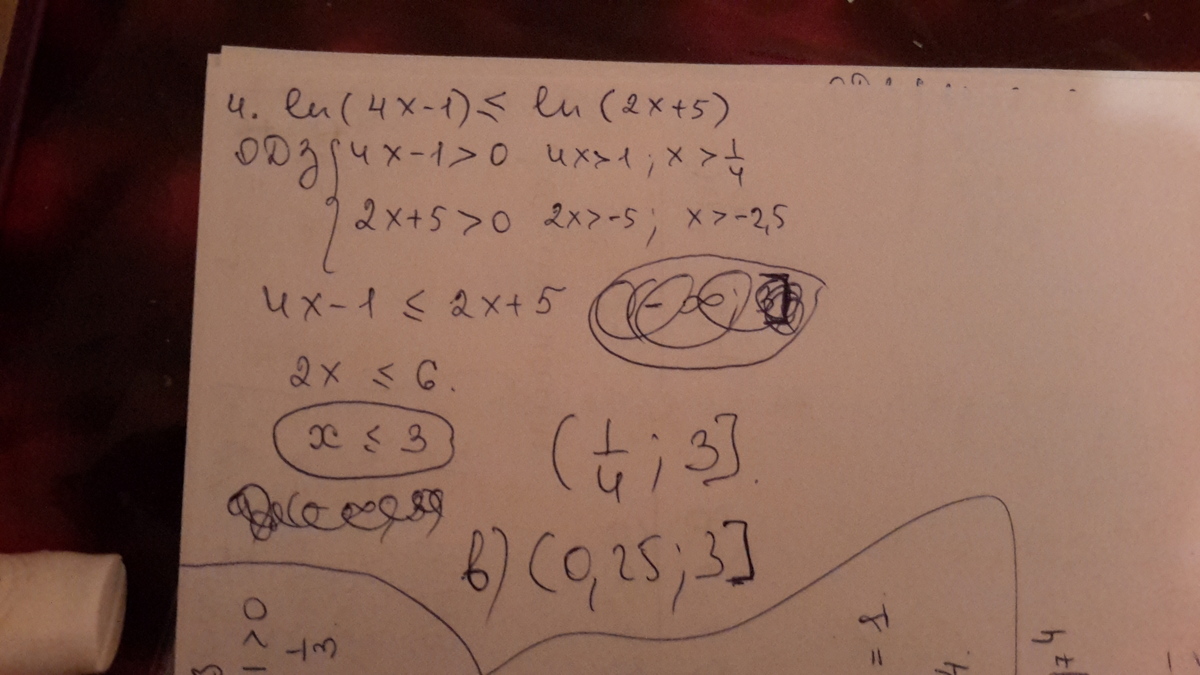 4. ln(4x-1) ≤ ln(2x+5)
ОДЗ { 4x-1>0 4x>1; x>1/4
2x+5>0 2x>-5; x>-2,5
4x-1 ≤ 2x+5
2x ≤ 6.
x ≤ 3
(1/4; 3].
в) (0,25; 3]